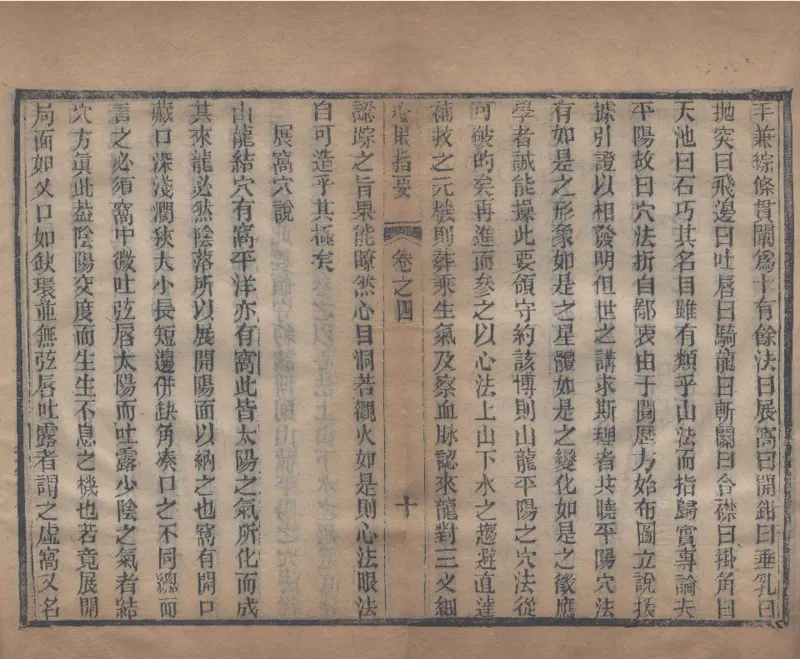 半兼綜條貫闡爲十有餘法曰展窩曰開鉗曰垂乳曰
拋突曰飛邊曰吐唇曰騎龍曰斬關曰合襟曰掛角曰
天池曰石巧其名目雖有類乎山法而指歸實專論夫
平陽故曰穴法折自鄙衷由于閱歷力始布圖立說援
據引證以相發明但世之講求斯理者共曉平陽穴法
有如是之形象如是之星體如是之變化如是之徵應
學者誠能操此要領守約該博則山龍平陽之穴法從
可破的矣再進而參之以心法上山下水之趨避直達
補救之元機則葬乘生氣及察血脉認來龍對三义細
心眼指要 卷之四 十
認踪之旨果能瞭然心目洞若觀火如是則心法眼法
自可造乎其極矣
展窩穴說
山龍結穴有窩平洋亦有窩此皆太陽之氣所化而成
其來龍必然陰落所以展開陽面以納之也窩有開口
藏口深淺濶狹大小長短邊併缺角奏口之不同總而
言之必須窩中微吐弦唇太陽而吐露少陰之氣者結
穴方眞此葢陰陽交度而生生不息之機也若竟展開
局面如义口如缺環並無弦唇吐露者謂之虛窩又名